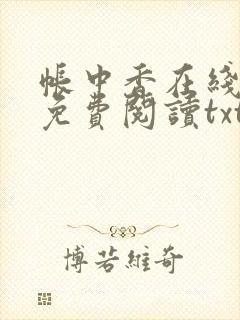 帳中香在綫
免費閱讀txt
博若維奇